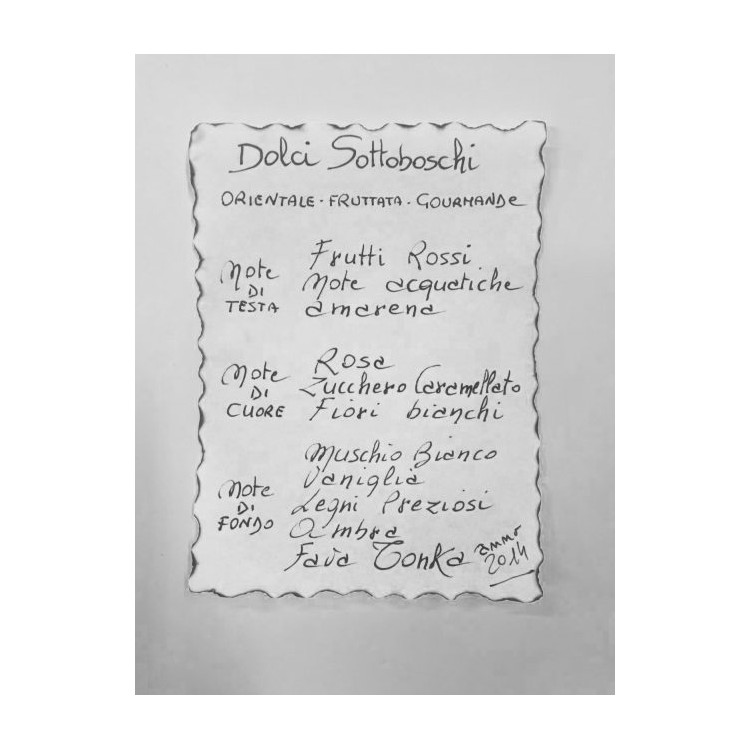 Dolci Sottoboschi
ORIENTALE - FRUTTATA - GOURMANDE
Note
DI
TESTA
Frutti Rossi
Note acquatiche
amarena
Note
DI
CUORE
Rosa
Zucchero Caramellato
Fiori bianchi
Note
DI
FONDO
Muschio Bianco
Vaniglia
Legni Preziosi
Ambra
Fava Tonka
anno
2014